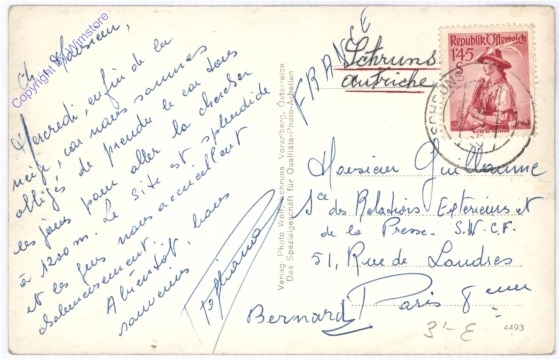 Copyright by Winstore
Ch. Monsieur,
Mercredi, enfin de la
neige, car nous sommes
obligés de prendre le car tous
les jours pour aller la chercher
à 1200m. Le site est splendide
et les gens nous accueillent
chaleureusement.
A bientôt, bons
souvenirs
Verlag: Photo Wolf, Schruns, Vorarlberg, Österreich
Das Spezialgeschäft für Qualitäts-Photo-Arbeiten
FRANCE
Schruns
autriche
Republik Österreich
1'45
SCHRUNS
Monsieur Guillaume
Sce des Relations Extérieures et
de la Presse S.N.C.F.
51, Rue de Londres
Paris 8eme
Bernard
3'-E
4493